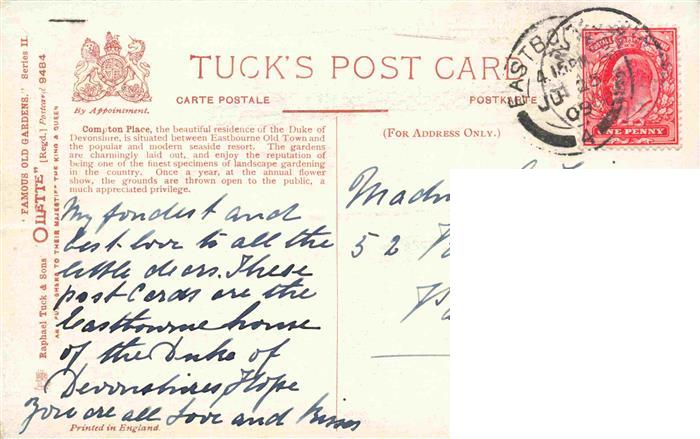 "FAMOUS OLD GARDENS." Series II.
"OILETTE" [Regd.] Postcard 9484
Raphael Tuck & Sons
ART PUBLISHERS TO THEIR MAJESTIES THE KING & QUEEN
By Appointment.
TUCK'S POST CARD
CARTE POSTALE
POSTKARTE
(FOR ADDRESS ONLY.)
Compton Place, the beautiful residence of the Duke of
Devonshire, is situated between Eastbourne Old Town and
the popular and modern seaside resort. The gardens
are charmingly laid out, and enjoy the reputation of
being one of the finest specimens of landscape gardening
in the country. Once a year, at the annual flower
show, the grounds are thrown open to the public, a
much appreciated privilege.
My fondest and
best love to all the
little dears. These
post Cards are the
Eastbourne house
of the Duke of
Devonshires Hope
you are all Love and Kisses
Printed in England.
52
ONE PENNY